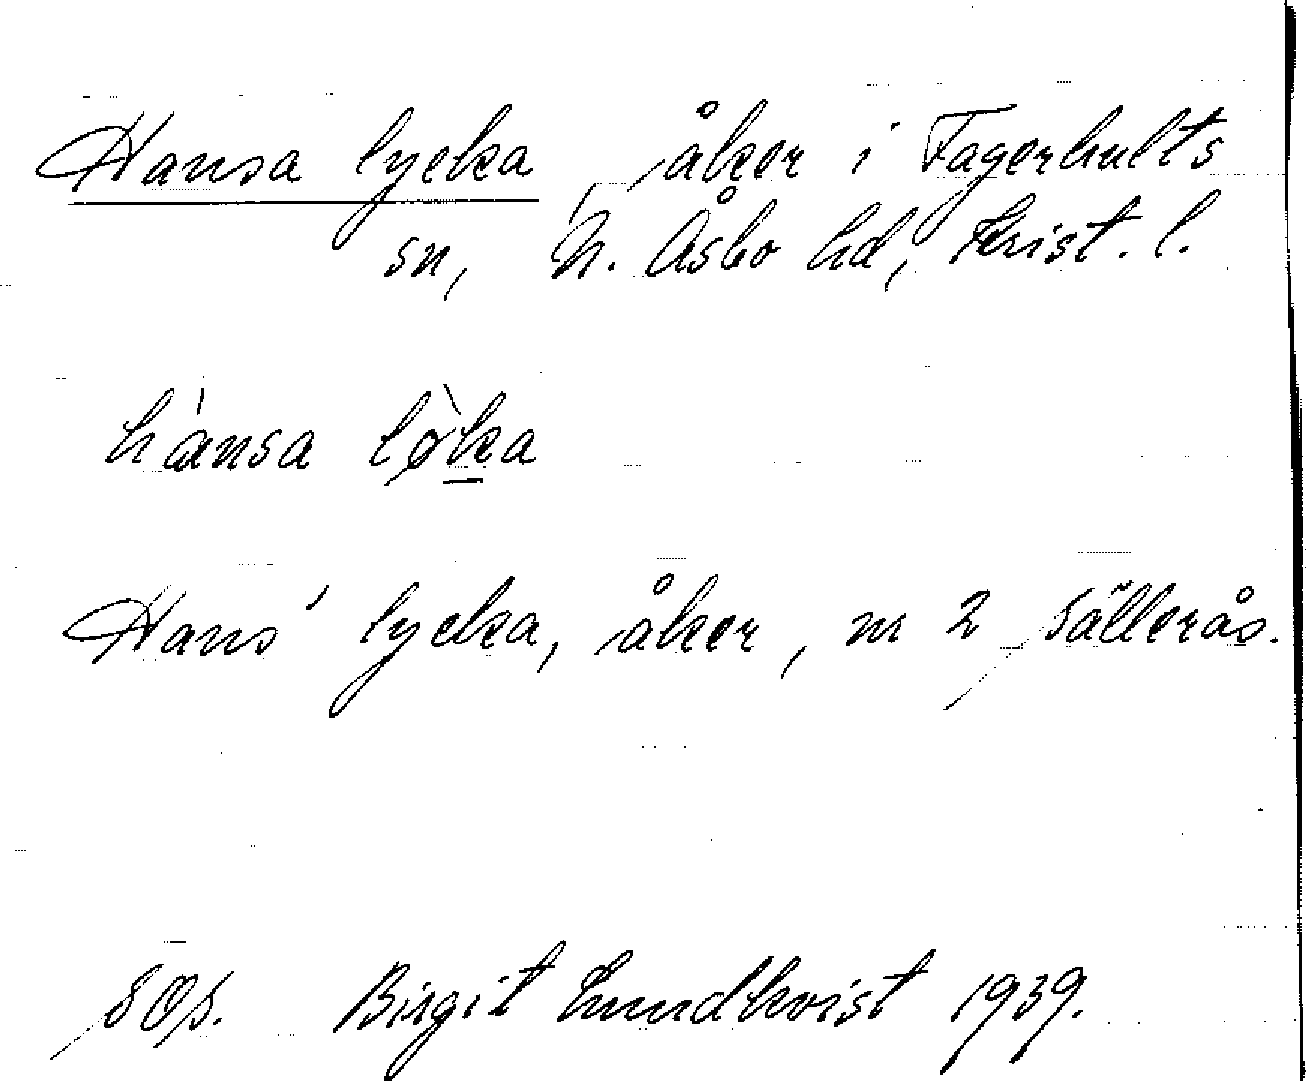 Hansa lycka, åker i Fagerhults
sn, N. Åsbo hd, Krist. l.
hànsa lø̀ka
Hans' lycka, åker, m 2 Sällerås.
sOs. Birgit Lundkvist 1939.